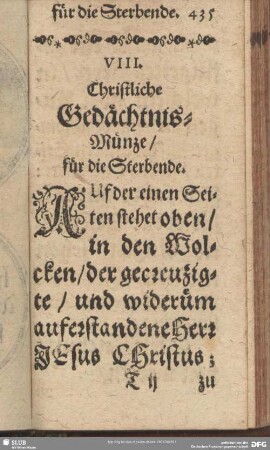 für die Sterbende. 435
VIII.
Christliche
Gedächtnis-
Müntze/
für die Sterbende.
AUf der einen Sei-
ten stehet oben/
in den Wol-
cken/der gecreuzig-
te / und widerüm
auferstandene Herr
JEsus CHristus;
T ij zu
SLUB